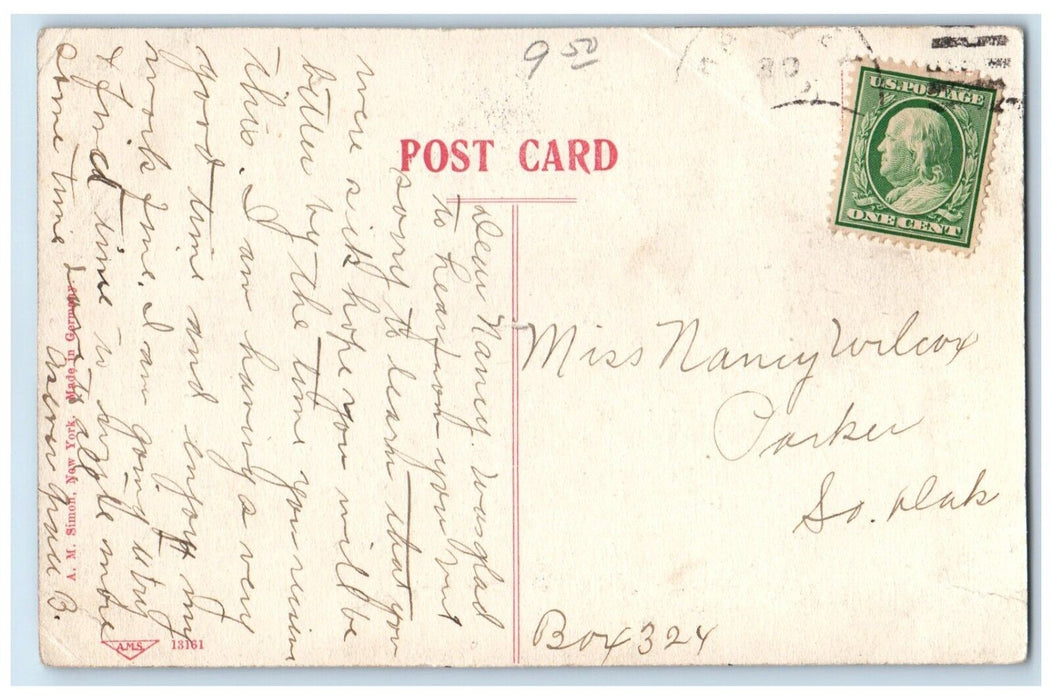 9 50
U.S. POSTAGE
ONE CENT
20
POST CARD
Dear Nancy. Was glad
to hear from you but
sorry to learn that you
were sick hope you will be
better by the time you receive
this. I am having a very
good time and enjoy my
work fine. I am going to try
& find time to write more
some time. Love to all
B.
Miss Nancy Wilcox
Parker
So. Dak
Box 324
A. M. Simon, New York. Made in Germany
A.M.S.
13161